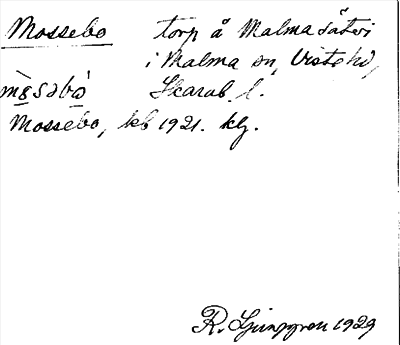 Mossebo torp å Malma Säteri
i Malma sn, Viste hd,
mòsəbò Skarab. l.
Mossebo, kb 1921. klj.
R. Ljunggren 1929